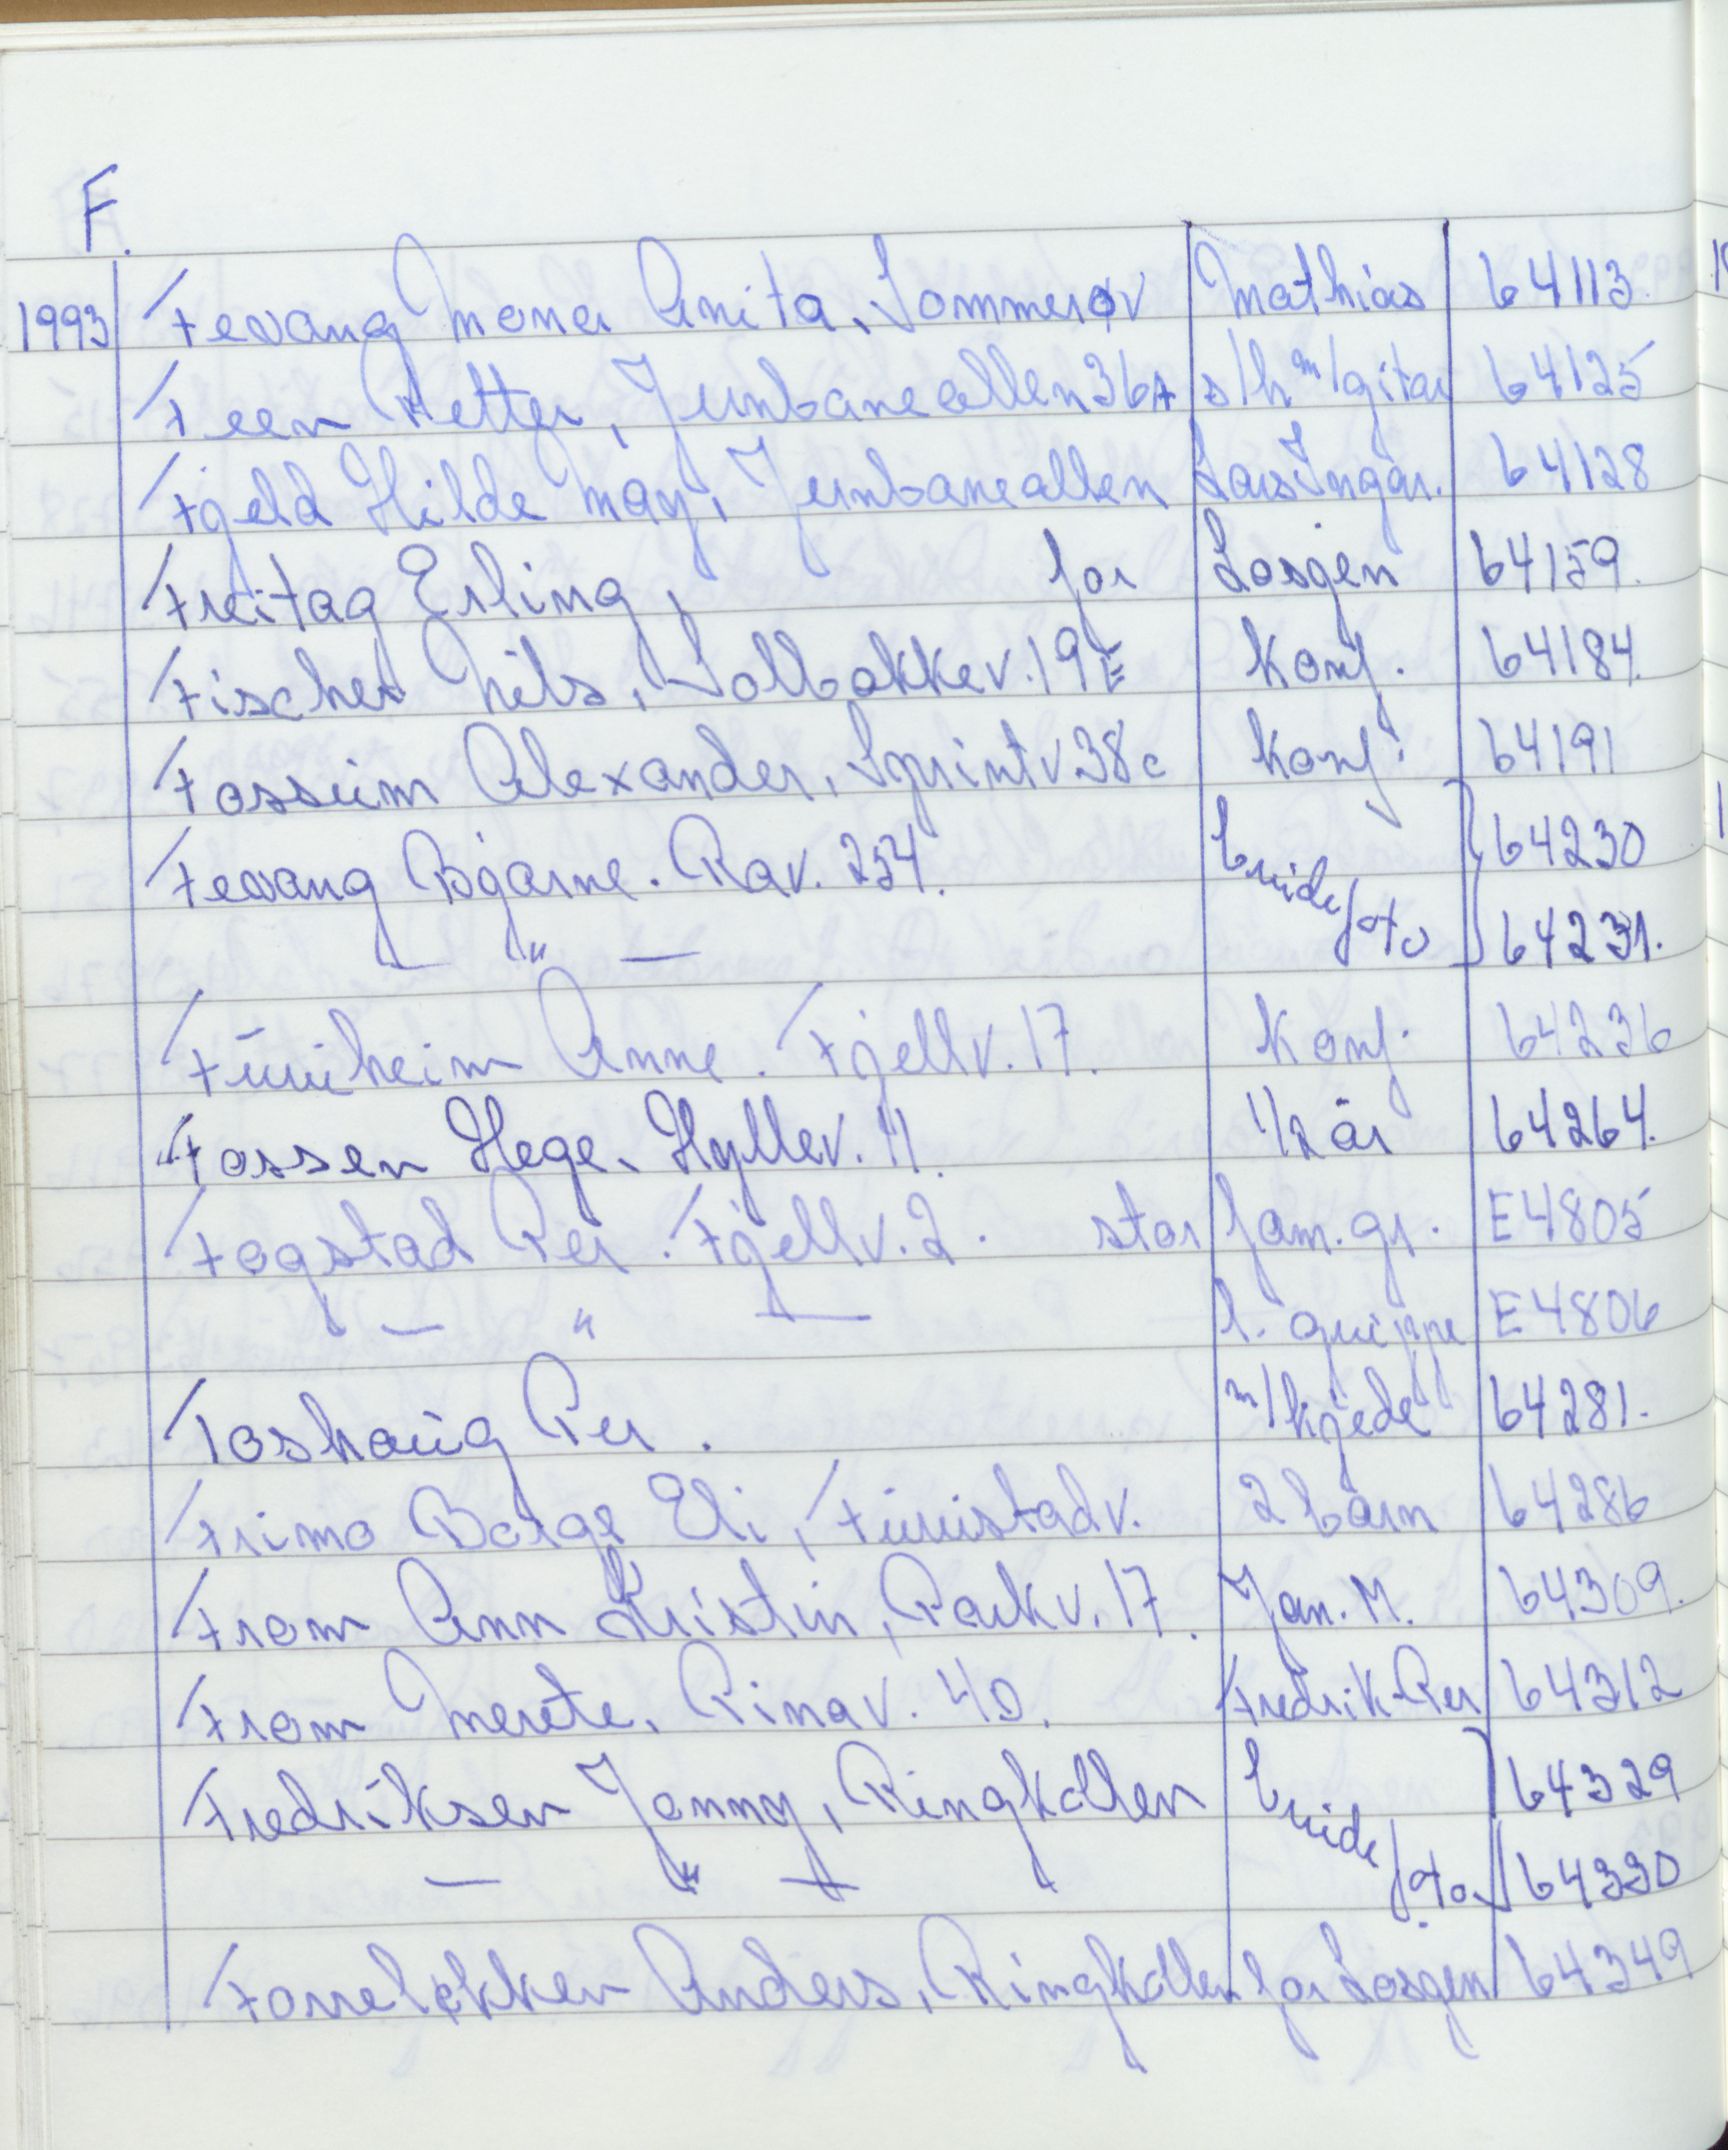 F.
1993 Fevang Mona Anita, Sommerøv Mathias 64113.
Feen Petter, Jernbanealleen 36A s/h m/gitar 64125
Fjeld Hilde May, Jernbanealleen Lars Ingar. 64128
Freitag Erling, for Losgen 64159.
Fischer Nils, Solbakkev. 19E Konf. 64184.
Fossum Alexander, Sprintv 38c Konf. 64191
Fevang Bjarne. Rav. 254. brude 64230
— " — foto 64231.
Furuheim Anne. Fjellv. 17. Konf. 64236
Fossen Hege. Hyllev. 11. 1/2 år 64264.
Fogstad Per. Fjellv. 2. stor fam. gr. E4805
— " — gruppe E4806
Foshaug Per. m/kjede 64281.
Frimo Borge Eli, Furustadv. 2 barn 64286
From Ann Kristin, Parkv. 17. Jan. M. 64309.
From Merete. Rimav. 40. Fredrik-Per 64312
Fredriksen Jonny, Ringkollen brude 64329
— " — foto 64330
Forreløkken Anders, Ringkollen for Losgen 64349